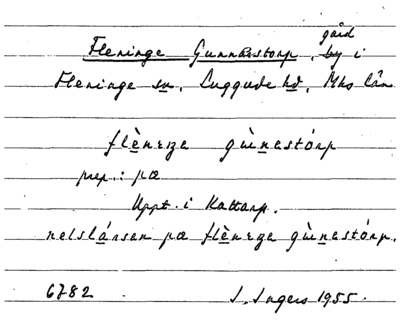 gård
Fleninge Gunnarstorp, by i
Fleninge sn, Luggude hd, Mhs län
flèneŋa gùnastórp
prep.: pæ
Uppt. i Kattarp.
nelslársan pæ flèneŋa gùnastórp.
6782. I. Ingers 1955.